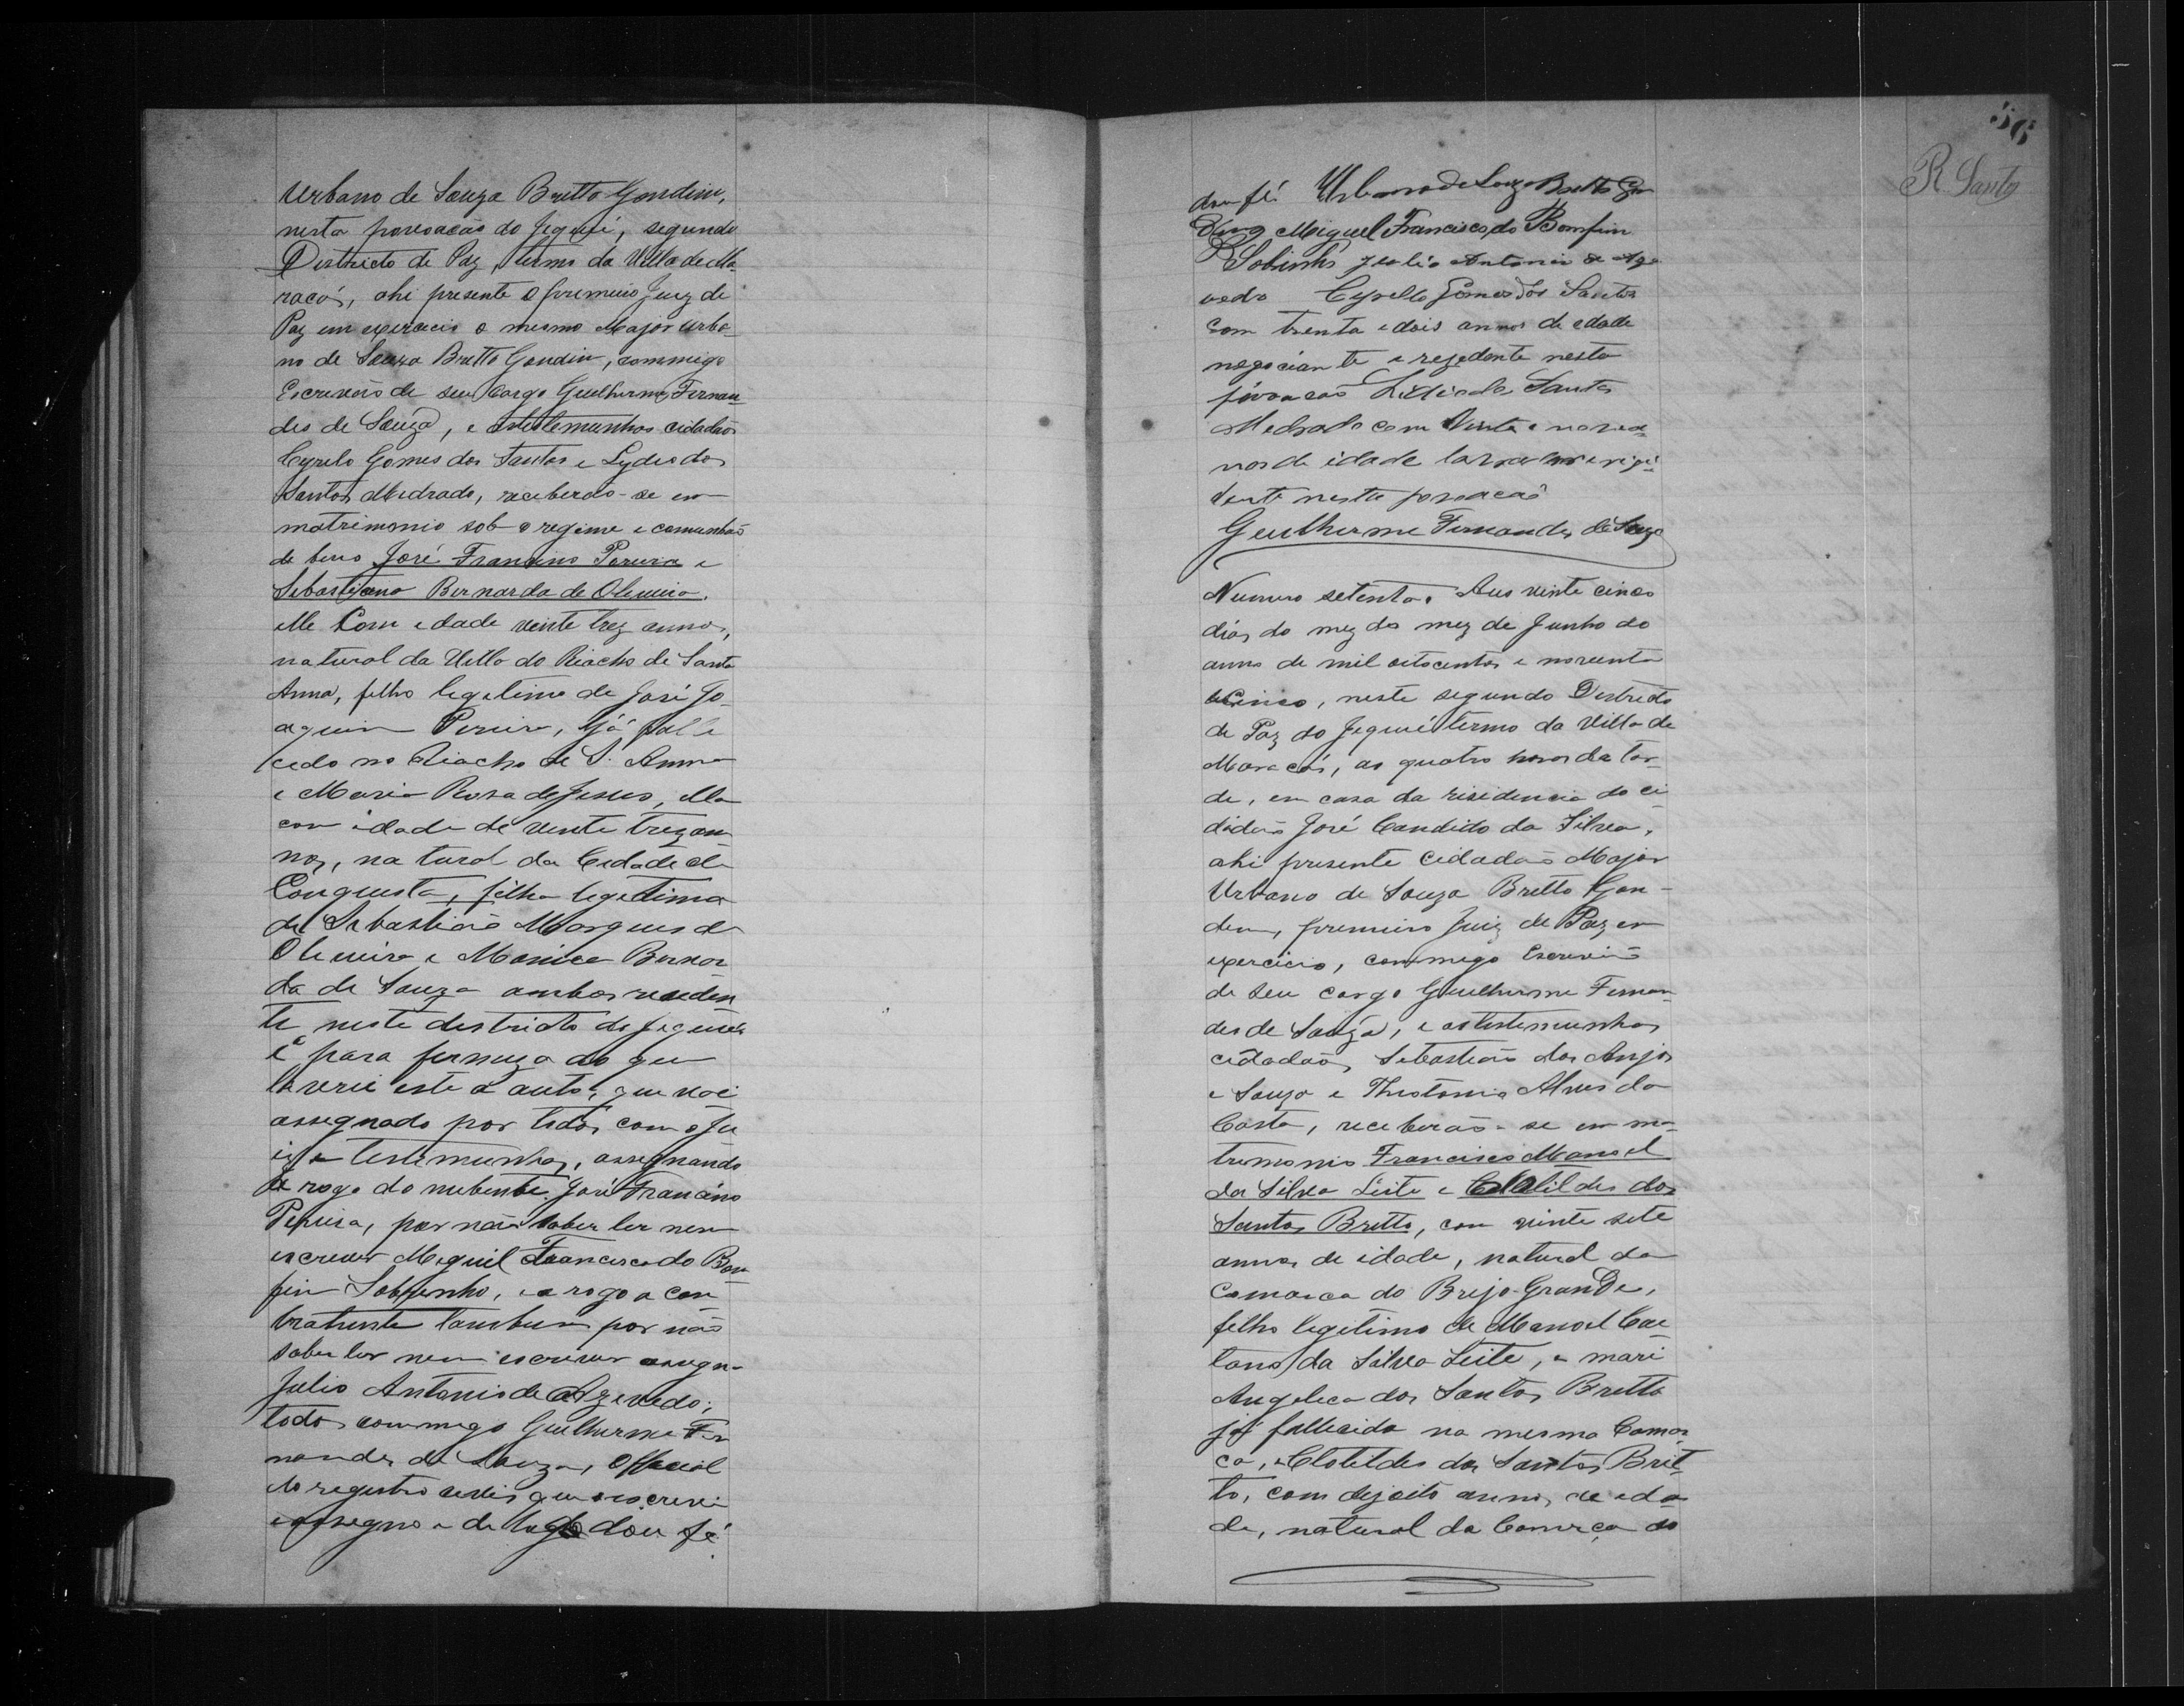 Urbano de Souza Britto Gondim,
nesta povoacão do Jequié, segundo
Districto de Paz, termo da Villa de Ma-
racás, ahi presente o premeiro Juiz de
Paz em exercicio o mesmo Major Urba-
no de Souza Britto Gondin, commigo
Escrivão de seu Cargo Guilherme Fernan-
des de Souza, e as testemunhas cidadãos
Cyrelo Gomes dos Santos e Lydio dos
Santos Medrado, receberão-se em
matrimonio sob o regime e comunhão
de bens José Francino Pereira e
Sebastiana Bernarda de Oliveira,
elle Com edade vente trez annos,
natural da Villa do Riacho de Santa
Anna, filho legitimo de José Jo-
aquim Pereira, já falle
cedo no Riacho de S. Anna
e Maria Rosa de Jesus, ella
com idade de vente trez an
nos, natural da Cidade de
Conquista, filha legitima
de Sebastião Marques de
Oliveira e Monica Bernar
da de Souza ambos reseden
te neste destricto do Jequié
E para fermeza do que
lavrei este a auto, que vai
assegnado por todos com o Ju
iz e testemunhas, assegnando
a rogo do nubente José Francino
Pereira, por não saber ler nem
escrever Meguel Francisco do Bom
fim Sobrinho, e a rogo a con
tratente tambem por não
saber ler nem escrever assegn-
Julio Antonio de Azevedo;
todos commego Guilherme Fer
nandes de Souza, Official
do registro cevis que o escrevi
e assegno e de tudo dou fé.
56
R. Santos
dou fé. Urbano de Souza Britto Gon
dim Miguel Francisco do Bomfim
Sobinho Julio Antonio de Aze
vedo Cyrello Gomes dos Santos
com trenta e dois annos de edade
negociante e rezedente nesta
povoacão Lidio dos Santos
Medrado com Vinte e nove a-
nos de idade lavrador e rizi-
dente nesta povoacão
Geulherme Fernandes de Souza
Numero setenta. Aus vinte cinco
dias do mez do mez de Junho do
anno de mil oitocentos e noventa
e Cinco, neste segundo Destricto
de Paz do Jequié termo da Villa de
Maracás, as quatro horas da tar-
de, em casa da risidencia do ci-
dadão José Candido da Silva,
ahi presente Cidadão Major
Urbano de Souza Britto Gon-
dem, premeiro Juiz de Paz em
exercicio, commego Escrivão
de seu cargo Guilherme Fernan-
des de Souza, e as testemunhas
cidadãos Sebastião dos Anjos
e Souza e Theotonio Alves da
Costa, receberão-se em ma-
tremonio Francisco Manoel
da Silva Leite e Clotildes dos
Santos Britto, com vinte sete
annos de idade, natural da
Comarca do Brejo-Grande,
felho legitimo de Manoel Cae-
tano da Silva Leite, e mari
Angeleca dos Santos Britto
já fallecida na mesma Comar-
ca, e Clotildes dos Santos Brit-
to, com dezoito annos de eda-
de, natural da Comarca do